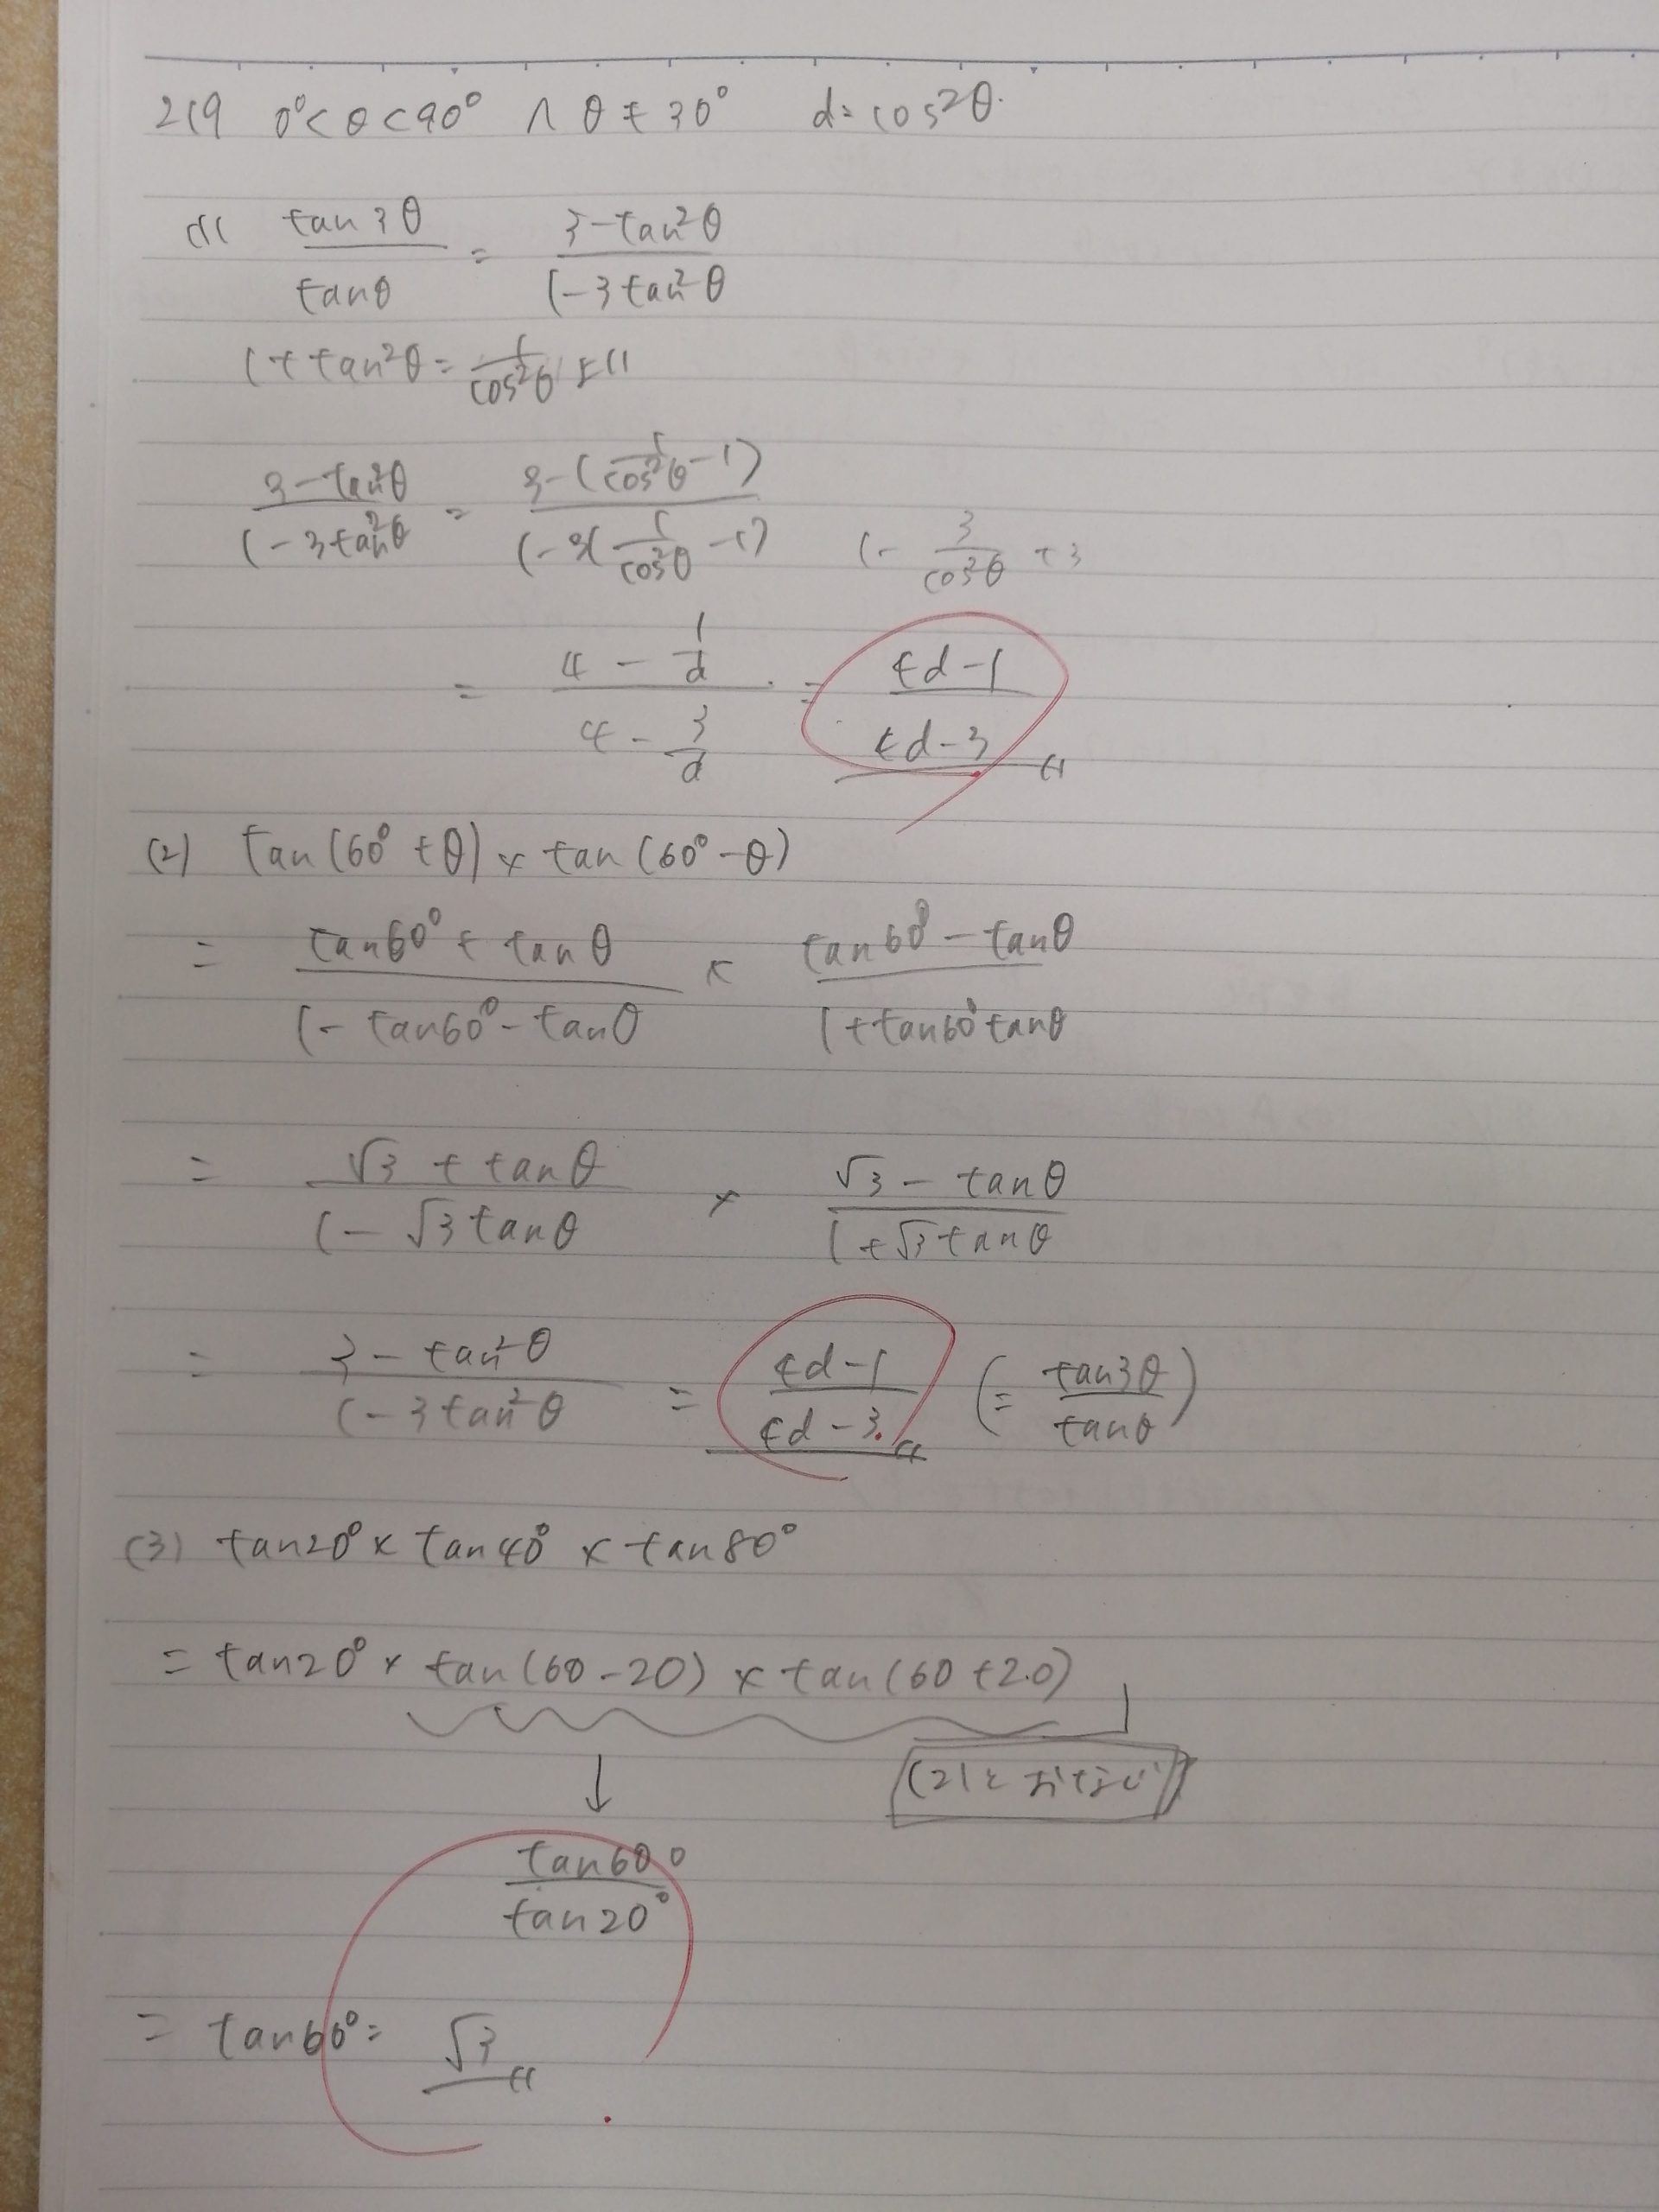 219 0°<θ<90° ∧ θ≠30° d=cos²θ.
(1) tan3θ/tanθ = (3-tan²θ)/(1-3tan²θ)
1+tan²θ = 1/cos²θ より
(3-tan²θ)/(1-3tan²θ) = (3-(1/cos²θ -1))/(1-3(1/cos²θ -1)) 1- 3/cos²θ +3
= (4 - 1/d)/(4 - 3/d) = (4d-1)/(4d-3)
(2) tan(60°+θ) × tan(60°-θ)
= (tan60°+tanθ)/(1-tan60°-tanθ) × (tan60°-tanθ)/(1+tan60°tanθ)
= (√3+tanθ)/(1-√3tanθ) × (√3-tanθ)/(1+√3tanθ)
= (3-tan²θ)/(1-3tan²θ) = (4d-1)/(4d-3) (= tan3θ/tanθ)
(3) tan20°×tan40°×tan80°
= tan20°×tan(60-20)×tan(60+20)
↓ (2)とおなじ
tan60°/tan20°
= tan60° = √3